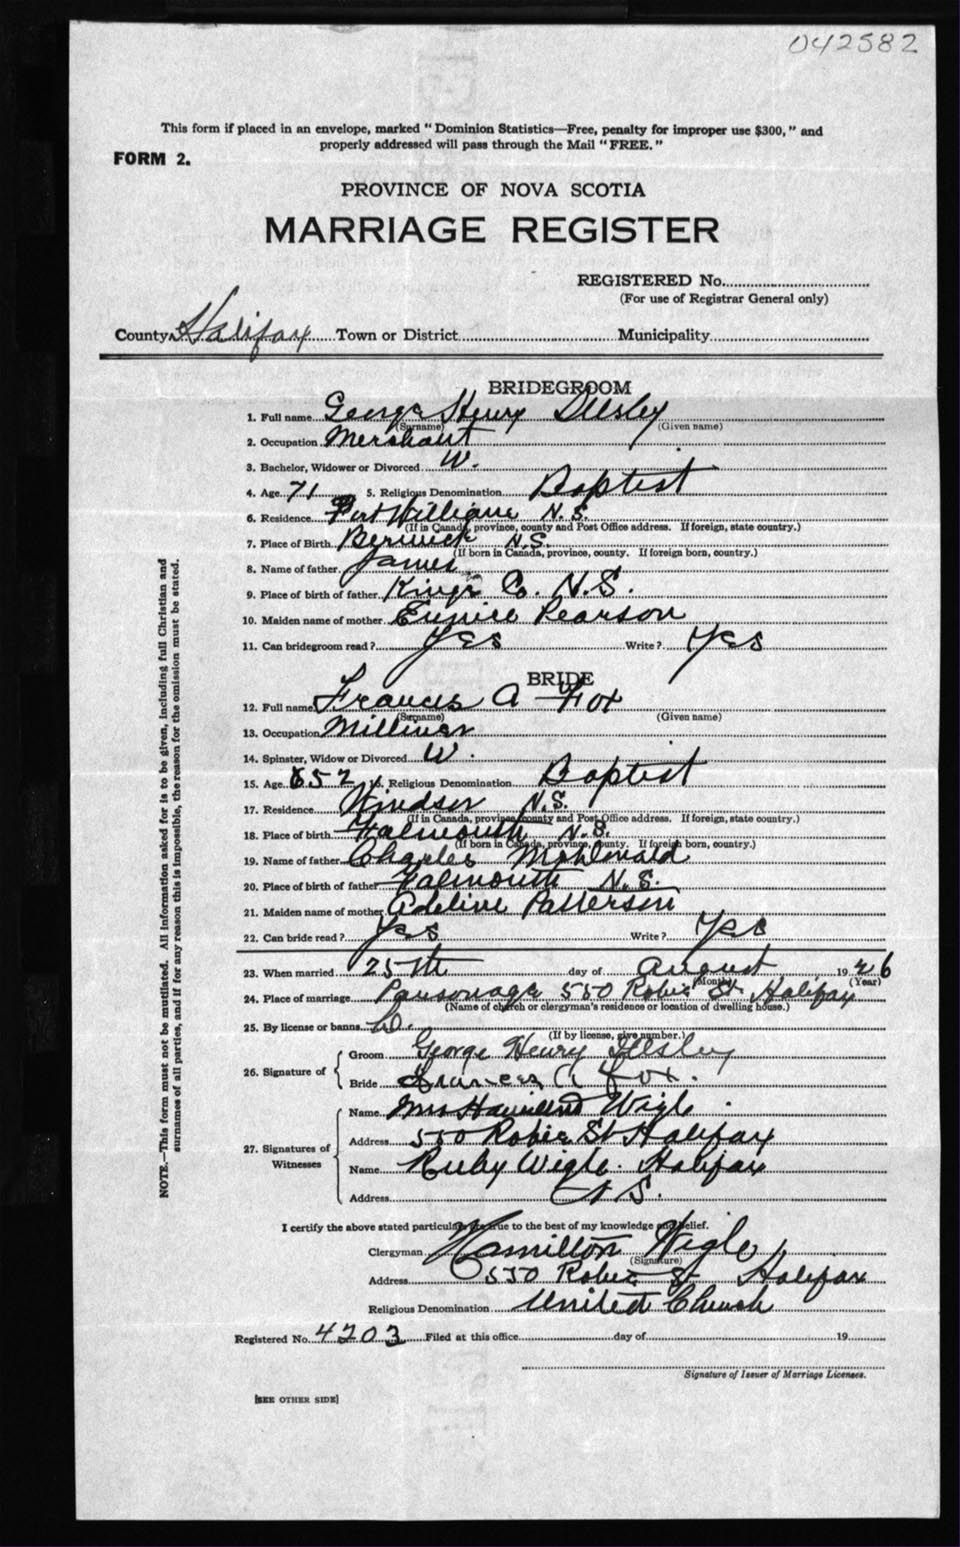 042582
This form if placed in an envelope, marked "Dominion Statistics—Free, penalty for improper use $300," and
properly addressed will pass through the Mail "FREE."
FORM 2.
PROVINCE OF NOVA SCOTIA
MARRIAGE REGISTER
REGISTERED No.
(For use of Registrar General only)
County Halifax Town or District Municipality
BRIDEGROOM
1. Full name George Henry Illsley
(Surname) (Given name)
2. Occupation Merchant
3. Bachelor, Widower or Divorced W.
4. Age 71 5. Religious Denomination Baptist
6. Residence Port Williams N.S.
(If in Canada, province, county and Post Office address. If foreign, state country.)
7. Place of Birth Berwick N.S.
(If born in Canada, province, county. If foreign born, country.)
8. Name of father James
9. Place of birth of father Kings Co. N.S.
10. Maiden name of mother Eunice Pearson
11. Can bridegroom read? Yes Write? Yes
BRIDE
12. Full name Frances A Fox
(Surname) (Given name)
13. Occupation Milliner
14. Spinster, Widow or Divorced W.
15. Age 52 16. Religious Denomination Baptist
17. Residence Windsor N.S.
(If in Canada, province, county and Post Office address. If foreign, state country.)
18. Place of birth Falmouth N.S.
(If born in Canada, province, county. If foreign born, country.)
19. Name of father Charles McDonald
20. Place of birth of father Falmouth N.S.
21. Maiden name of mother Adeline Patterson
22. Can bride read? Yes Write? Yes
23. When married 25th day of August 1926
(Month) (Year)
24. Place of marriage Parsonage 550 Robie St Halifax
(Name of church or clergyman's residence or location of dwelling house.)
25. By license or banns L.
(If by license, give number.)
26. Signature of
Groom George Henry Illsley
Bride Frances A Fox.
27. Signatures of Witnesses
Name Mrs Hamilton Wigle
Address 550 Robie St Halifax
Name Ruby Wigle. Halifax
Address N S.
I certify the above stated particulars are true to the best of my knowledge and belief.
Clergyman Hamilton Wigle
(Signature)
Address 550 Robie St Halifax
Religious Denomination United Church
Registered No. 4203 Filed at this office day of 19
Signature of Issuer of Marriage Licenses.
[SEE OTHER SIDE]
NOTE.—This form must not be mutilated. All information asked for is to be given, including full Christian and
surnames of all parties, and if for any reason this is impossible, the reason for the omission must be stated.